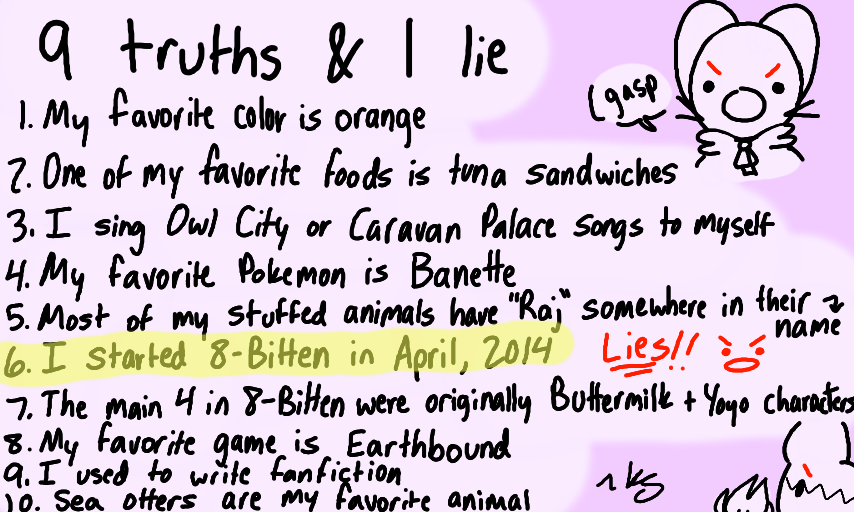 9 truths & 1 lie
gasp
1. My favorite color is orange
2. One of my favorite foods is tuna sandwiches
3. I sing Owl City or Caravan Palace songs to myself
4. My favorite Pokemon is Banette
5. Most of my stuffed animals have "Raj" somewhere in their
name
6. I started 8-Bitten in April, 2014
Lies!!
7. The main 4 in 8-Bitten were originally Buttermilk + Yoyo characters
8. My favorite game is Earthbound
9. I used to write fanfiction
10. Sea otters are my favorite animal
~ks